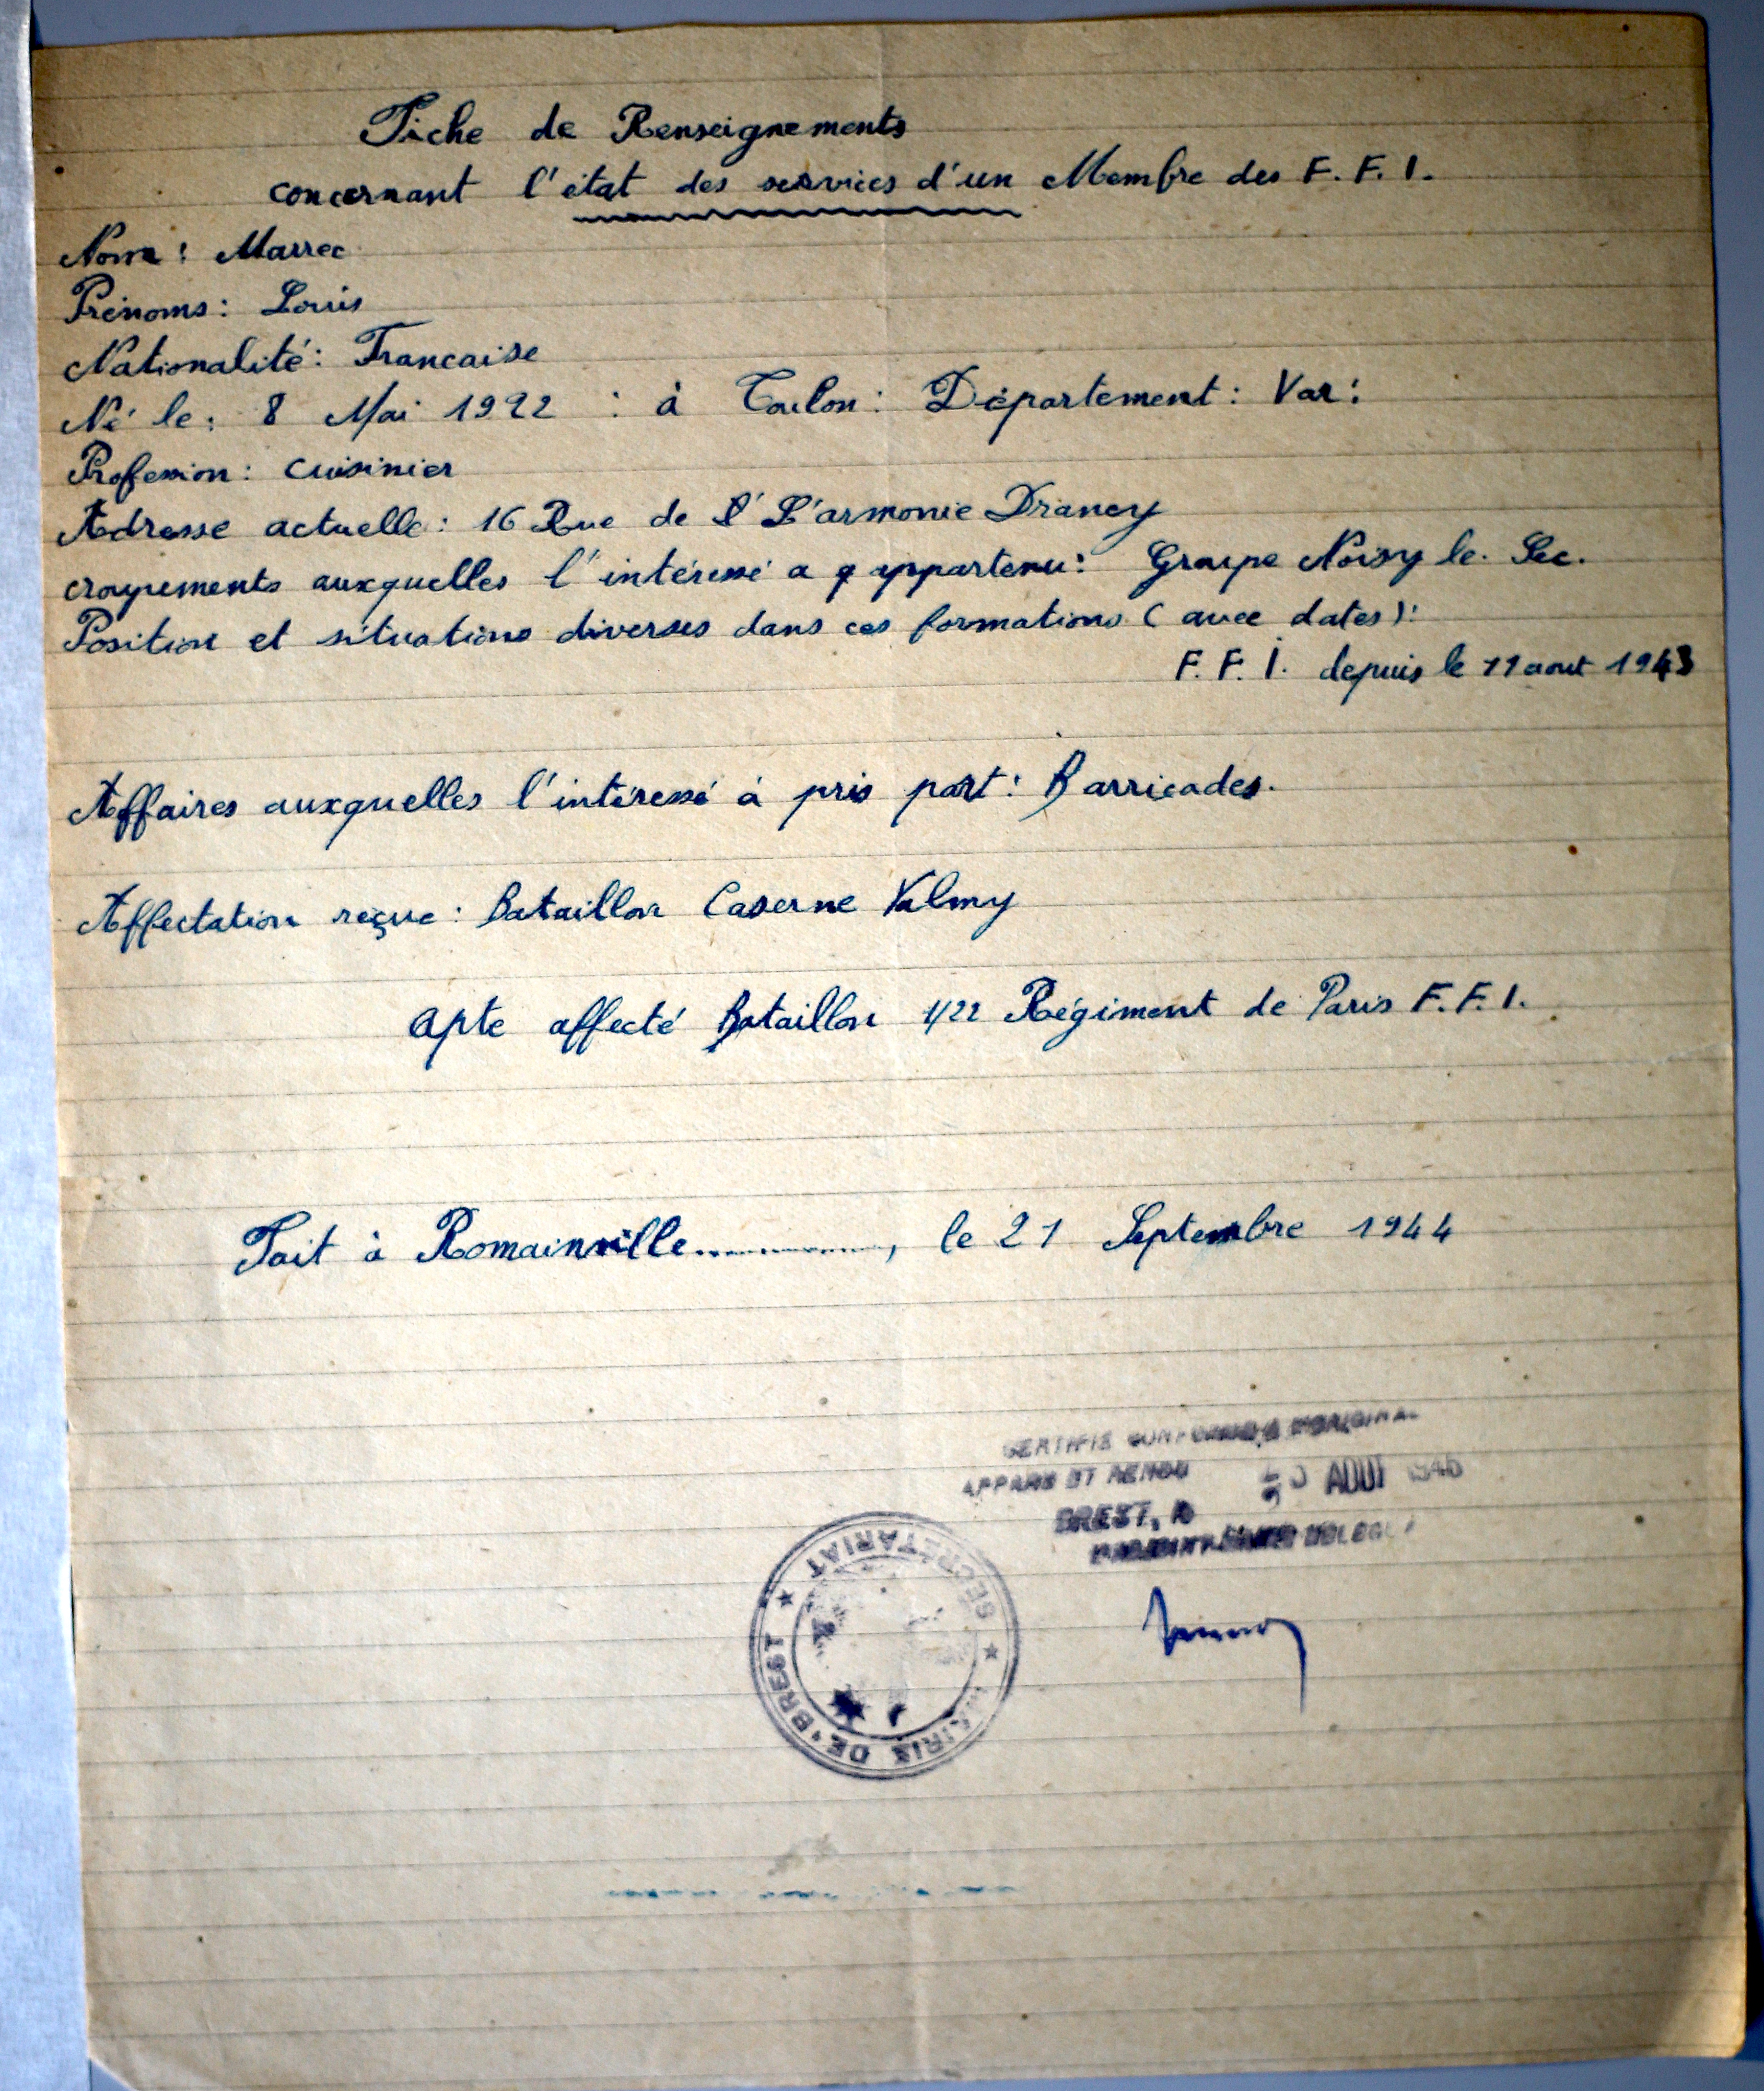 Fiche de Renseignements
concernant l'état des services d'un Membre des F.F.I.
Nom : Marrec
Prénoms : Louis
Nationalité : Francaise
Né le : 8 Mai 1922 : à Toulon : Département : Var :
Profession : cuisinier
Adresse actuelle : 16 Rue de l' L'armonie Drancy
croupements auxquelles l'intéressé a appartenu : Groupe Noisy le. Sec.
Position et situations diverses dans ces formations ( avec dates ) :
F. F. I. depuis le 11 aout 1943
Affaires auxquelles l'intéressé à pris part : Barricades.
Affectation reçue : Bataillon Caserne Valmy
Apte affecté Bataillon 1/22 Régiment de Paris F.F.I.
Fait à Romainville..............., le 21 Septembre 1944
CERTIFIE CONFORME A L'ORIGINAL
AOUT
BREST, le
MAIRIE DE BREST ★ SECRÉTARIAT ★